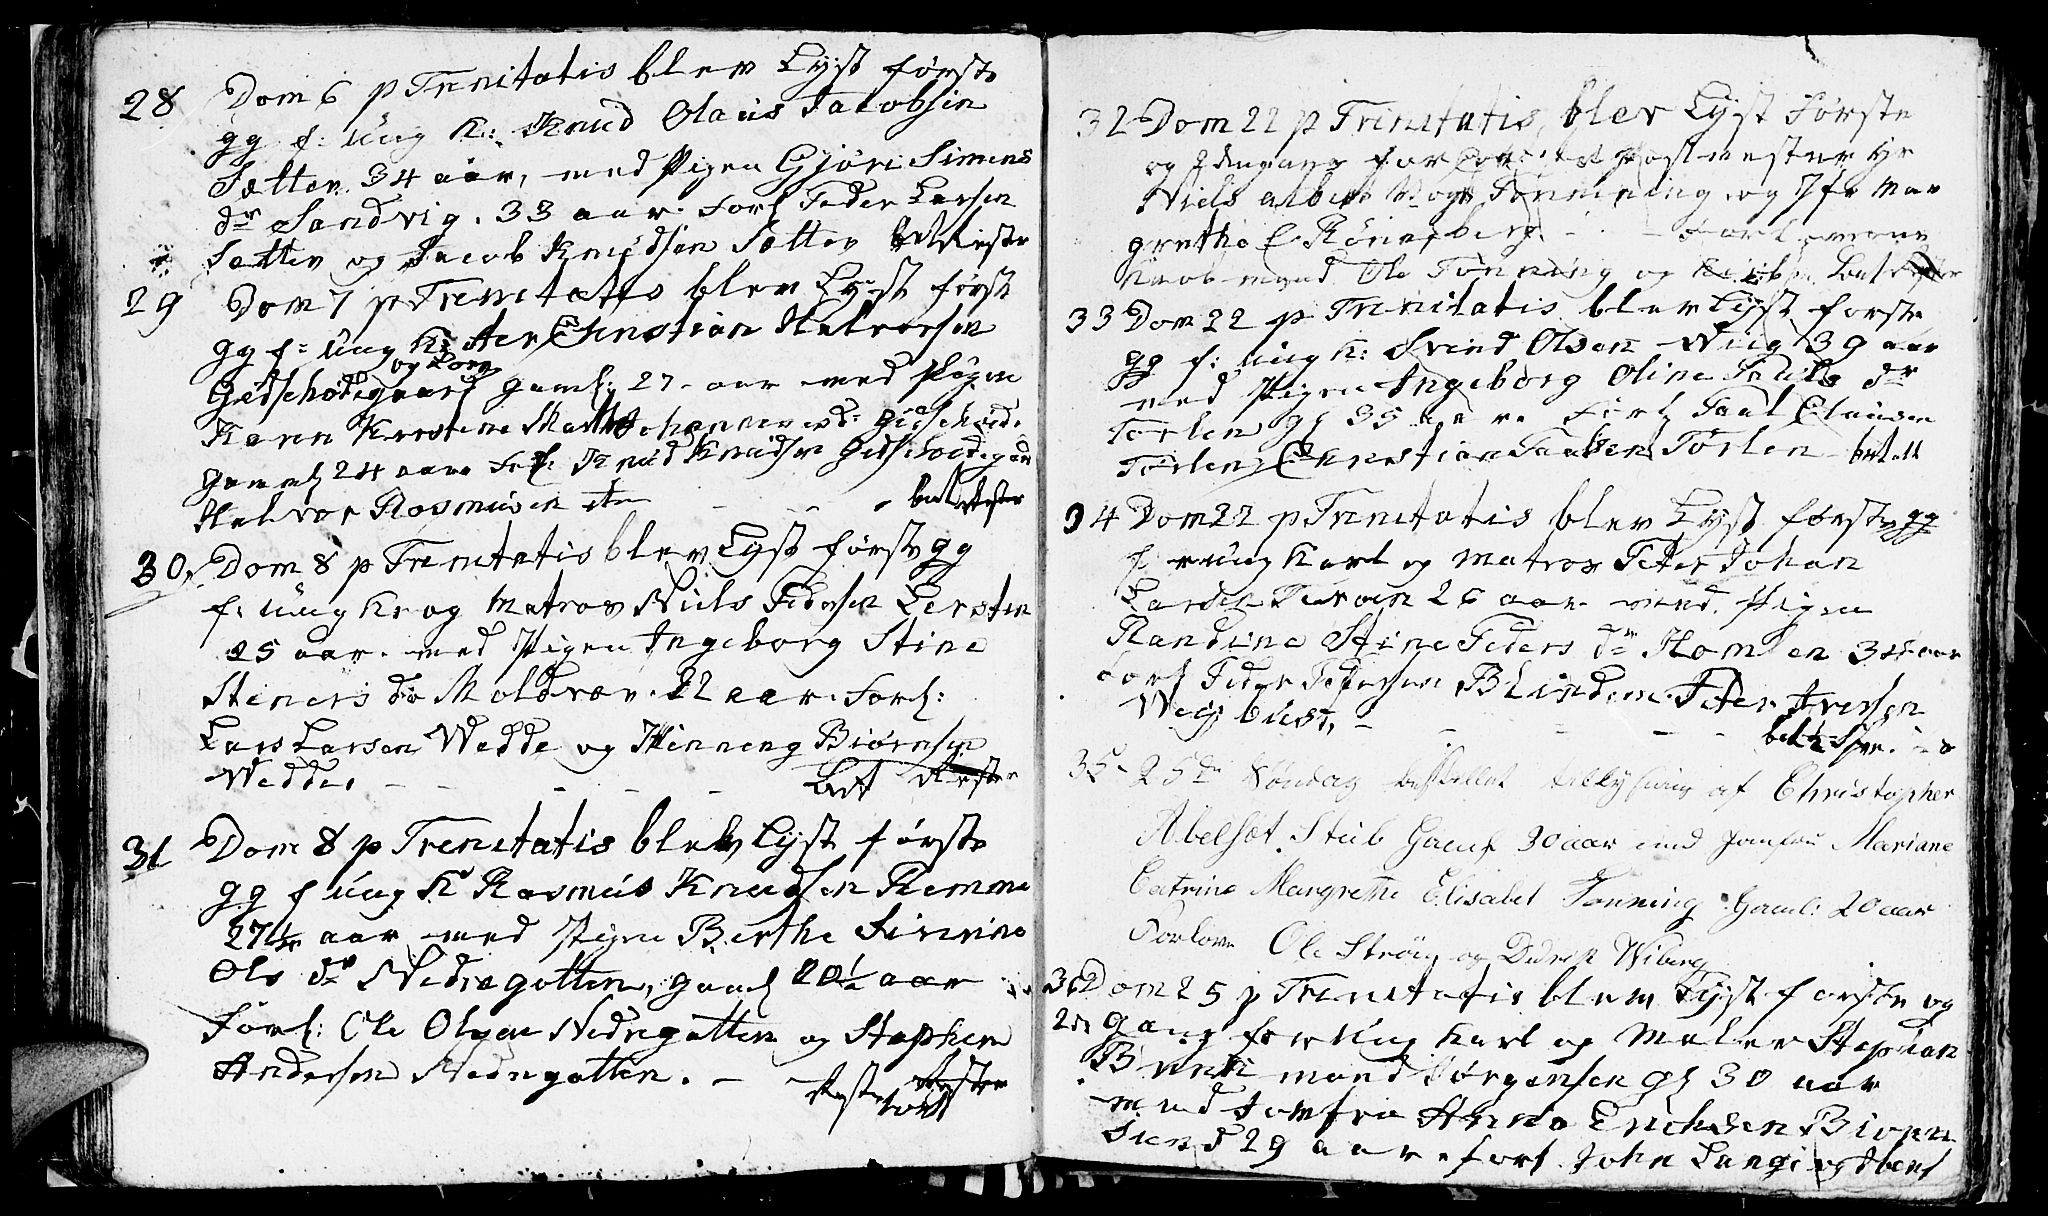 28 Dom 6 p Trenitatis blev Lyst første
gg f: ung K: Knud Olaus Jacobsen
Sætter 34 aar, med Pigen Gjøri Simens
dr Sandvig. 33 aar. Forl Peder Larsen
Sætter og Jacob Knudsen Sætter
29 Dom 7 p Trenitatis blev Lyst første
gg f: ung K: Christian Halvorsen
og Borg
Gidschødegaard gaml: 27 aar med Pigen
Karen Kirstine Gidschød.
gaml 24 aar Forl: Knud Knudsen Gidschødegaard
Halvor Rasmusen - - - bet
30 Dom 8 p Trenitatis blev Lyst første gg
f: ung K og Matros Niels Pedersen Lersten
25 aar. med Pigen Ingeborg Stine
Steners dr Moldvær. 22 aar. Forl:
Lars Larsen Wedde og Henning Biørnsen
Wedde. - - - - Bet
31 Dom 8 p Trenitatis blev Lyst første
gg f ung K Rasmus Knudsen Remme
27 1/2 aar med Pigen Berthe Sirine
Ols dr Nedregotten, gaml 20 1/2 aar
Forl: Ole Olsen Nedregotten og Stephen
Andersen Nedregotten. -
32 Dom 22 p Trenitatis, blev Lyst Første
og gang for Postmester Hr
Niels Tønning og Jfr Mar
grethe E Rønneberg. - - Forloverne
Ole Tønning og
33 Dom 22 p Trenitatis blev Lyst første
gg f: ung K: Svend Olsen Wiig 39 aar
med Pigen Ingeborg Oline Pauls dr
Torlen gl 35 aar. Forl Paal Clausen
Torlen, Christian Paulsen Torlen betalt
34 Dom 22 p Trenitatis blev Lyst første gg
f ung Karl og Matros Peter Johan
Larsen 26 aar med Pigen
Randine Stine Peders dr Homlen 34 aar
Forl Peder Pedersen Blindem. Peter Iversen
Weibust, - - - - bet 1/2 Spe.
35 25de Søndag bestillet tillysning af Christopher
Abelsæt Stub Gaml 30 aar med Jomfru Mariane
Catrine Margrethe Elisabet Tønning Gaml: 20 aar
Forlovr Ole Strøm og Didrik Wiberg
36 Dom 25 p Trenitatis blev Lyst første og
2d gang for ung Karl og Maler Stephan
mand Jørgensen gl 30 aar
med Jomfru Anna Erichsen Biørn
sund 29 aar. forl. John Lange og